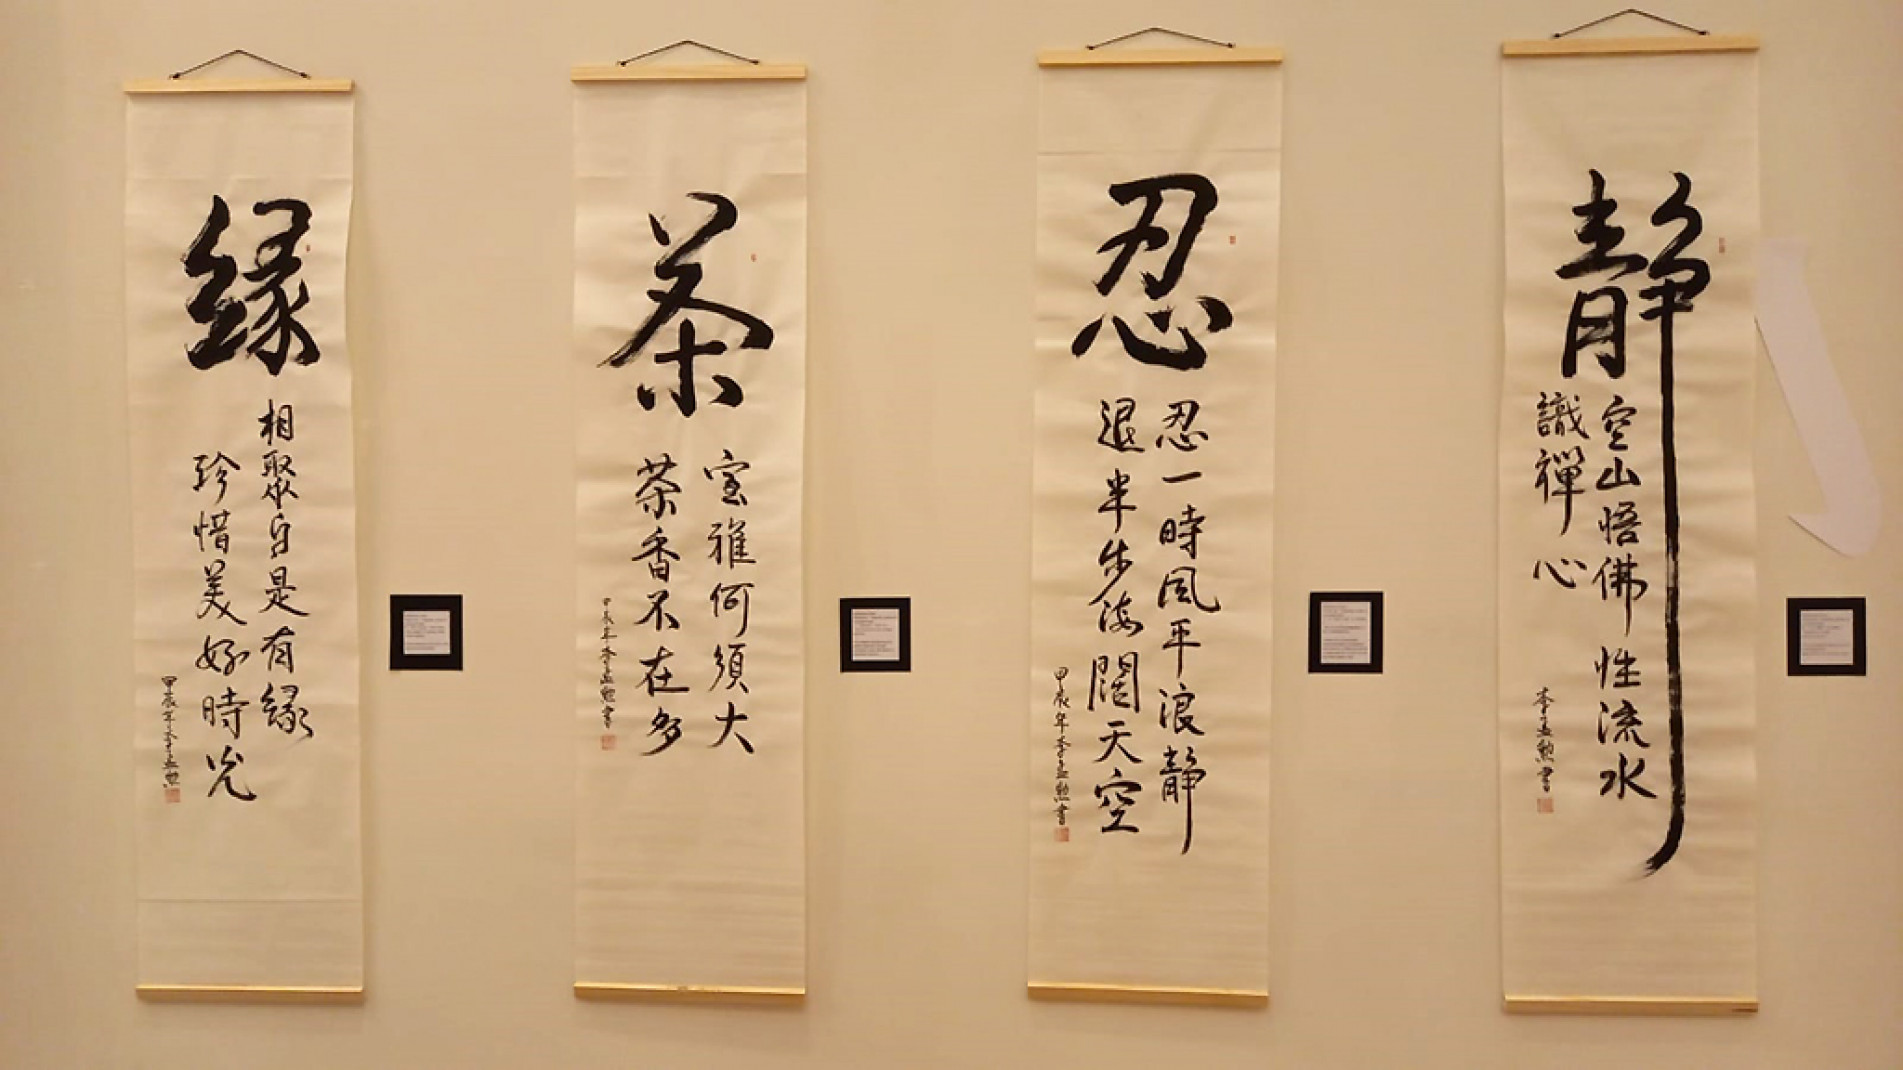 靜
空山悟佛 性流水
識禪心
李孟勲書
忍
忍一時風平浪靜
退半步海闊天空
甲辰年李孟勲書
茶
室雅何須大
茶香不在多
甲辰年李孟勲書
緣
相聚自是有緣
珍惜美好時光
甲辰年李孟勲